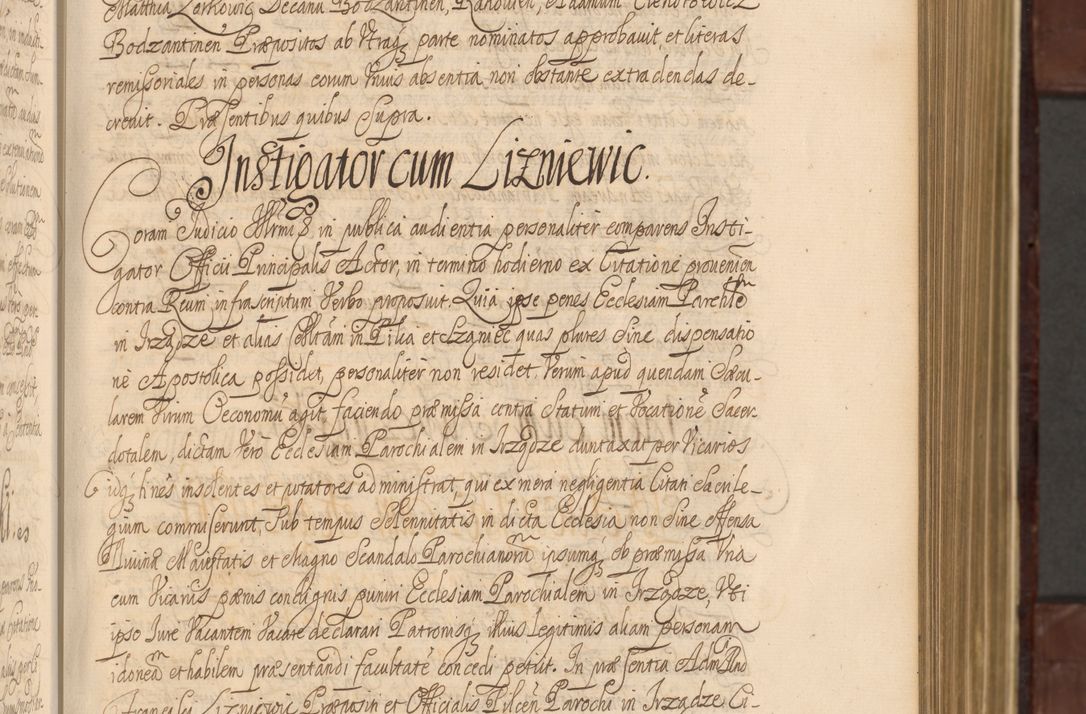 Matthia Zarkowic Decanu Bodzantinen, Kanouien, et Adamum
Bodzantinen Præpositos ab Vtraq parte nominatos approbauit, et literas
remissoriales in personas eorum Vnius absentia non obstante extradendas de-
creuit. Præsentibus quibus supra.
Instigator cum Lizniewic.
Coram Judicio in publica audientia personaliter comparens Insti-
gator Officii Principalis Actor, in termino hodierno ex Citatione prouenien
contra Reum infrascriptum Verbo proposuit. Quia ipse penes Ecclesiam Parochlem
in Irządze et alias in Pilia et quas plures sine dispensatio
ne Apostolica possidet, personaliter non residet, Verum apud quendam Sæcu-
larem Virum Oeconomū agit, faciendo præmissa contra Statum et Vocationē Sacer
dotalem, dictam Verò Ecclesiam Parochialem in Irządze duntaxat per Vicarios
insolentes et putatores administrat, qui ex mera negligentia Citati Sacrile-
gium commiserunt, Sub tempus Solennitatis in dicta Ecclesia non sine offensa
Diuinæ Maiestatis et Magno Scandalo Parochianorū ipsumq ob præmissa Vna
cum Vicariis pænis condignis puniri Ecclesiam Parochialem in Irządze, Vti
ipso Iure Vacantem Vacare declarari Patronisq illius Legitimis aliam personam
idoneā et habilem præsentandi facultatē concedi petiit. In præsentia Adm Rnd
Francisci Lizniewic Præpositi et Officialis Pilcen Parochi in Irządze Ci-